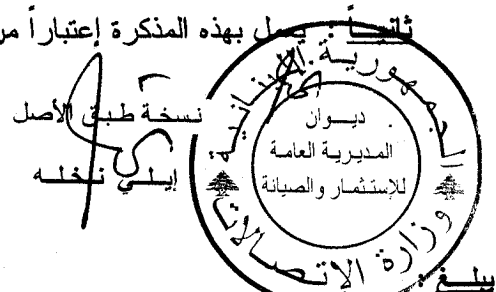 ثانيــاً : يعمل بهذه المذكرة إعتباراً من
نسخة طبق الأصل
إيلي نخله
الجمهورية اللبنانية
ديـوان
المديرية العامة
للإستثمار والصيانة
وزارة الاتصالات
يبلــغ :